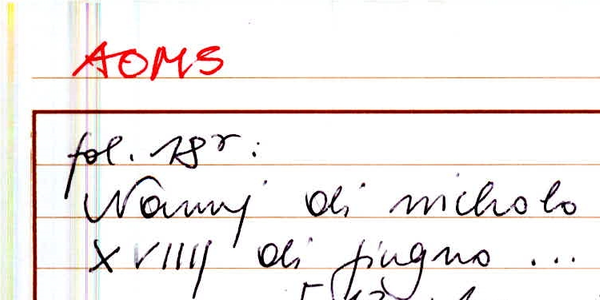 AOMS
fol. 18r:
Nannj di nicholo
XVIIIJ di giugno ...